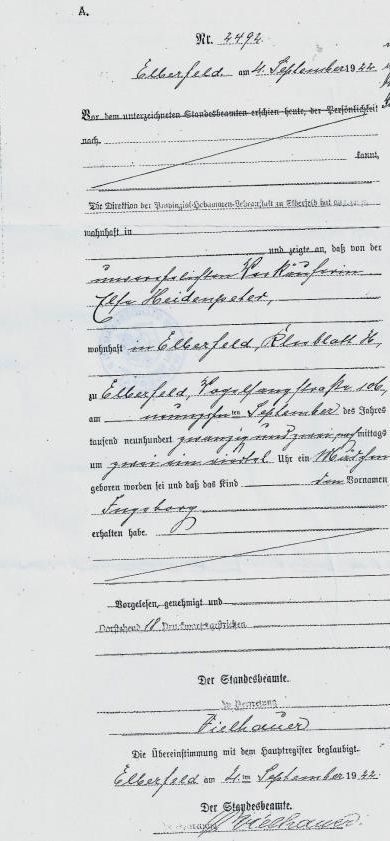 A.
Nr. 2492.
Elberfeld am 4. September 1922
Vor dem unterzeichneten Standesbeamten erschien heute, der Persönlichkeit
nach
kannt,
Die Direktion der Provinzial-Hebammen-Lehranstalt zu Elberfeld hat
wohnhaft in
und zeigte an, daß von der
unverehelichten Verkäuferin
Heidenpeter,
wohnhaft in Elberfeld,
zu Elberfeld, Vogelsangstraße 106,
am ten September des Jahres
tausend neunhundert zwanzig und zwei mittags
um zwei ein viertel Uhr ein Mädchen
geboren worden sei und daß das Kind den Vornamen
Ingeborg
erhalten habe.
Vorgelesen, genehmigt und
Vorstehend 18 Druckworte gestrichen
Der Standesbeamte.
In Vertretung
Vielhauer
Die Übereinstimmung mit dem Hauptregister beglaubigt.
Elberfeld am 4ten September 1922
Der Standesbeamte.
In Vertretung Vielhauer.